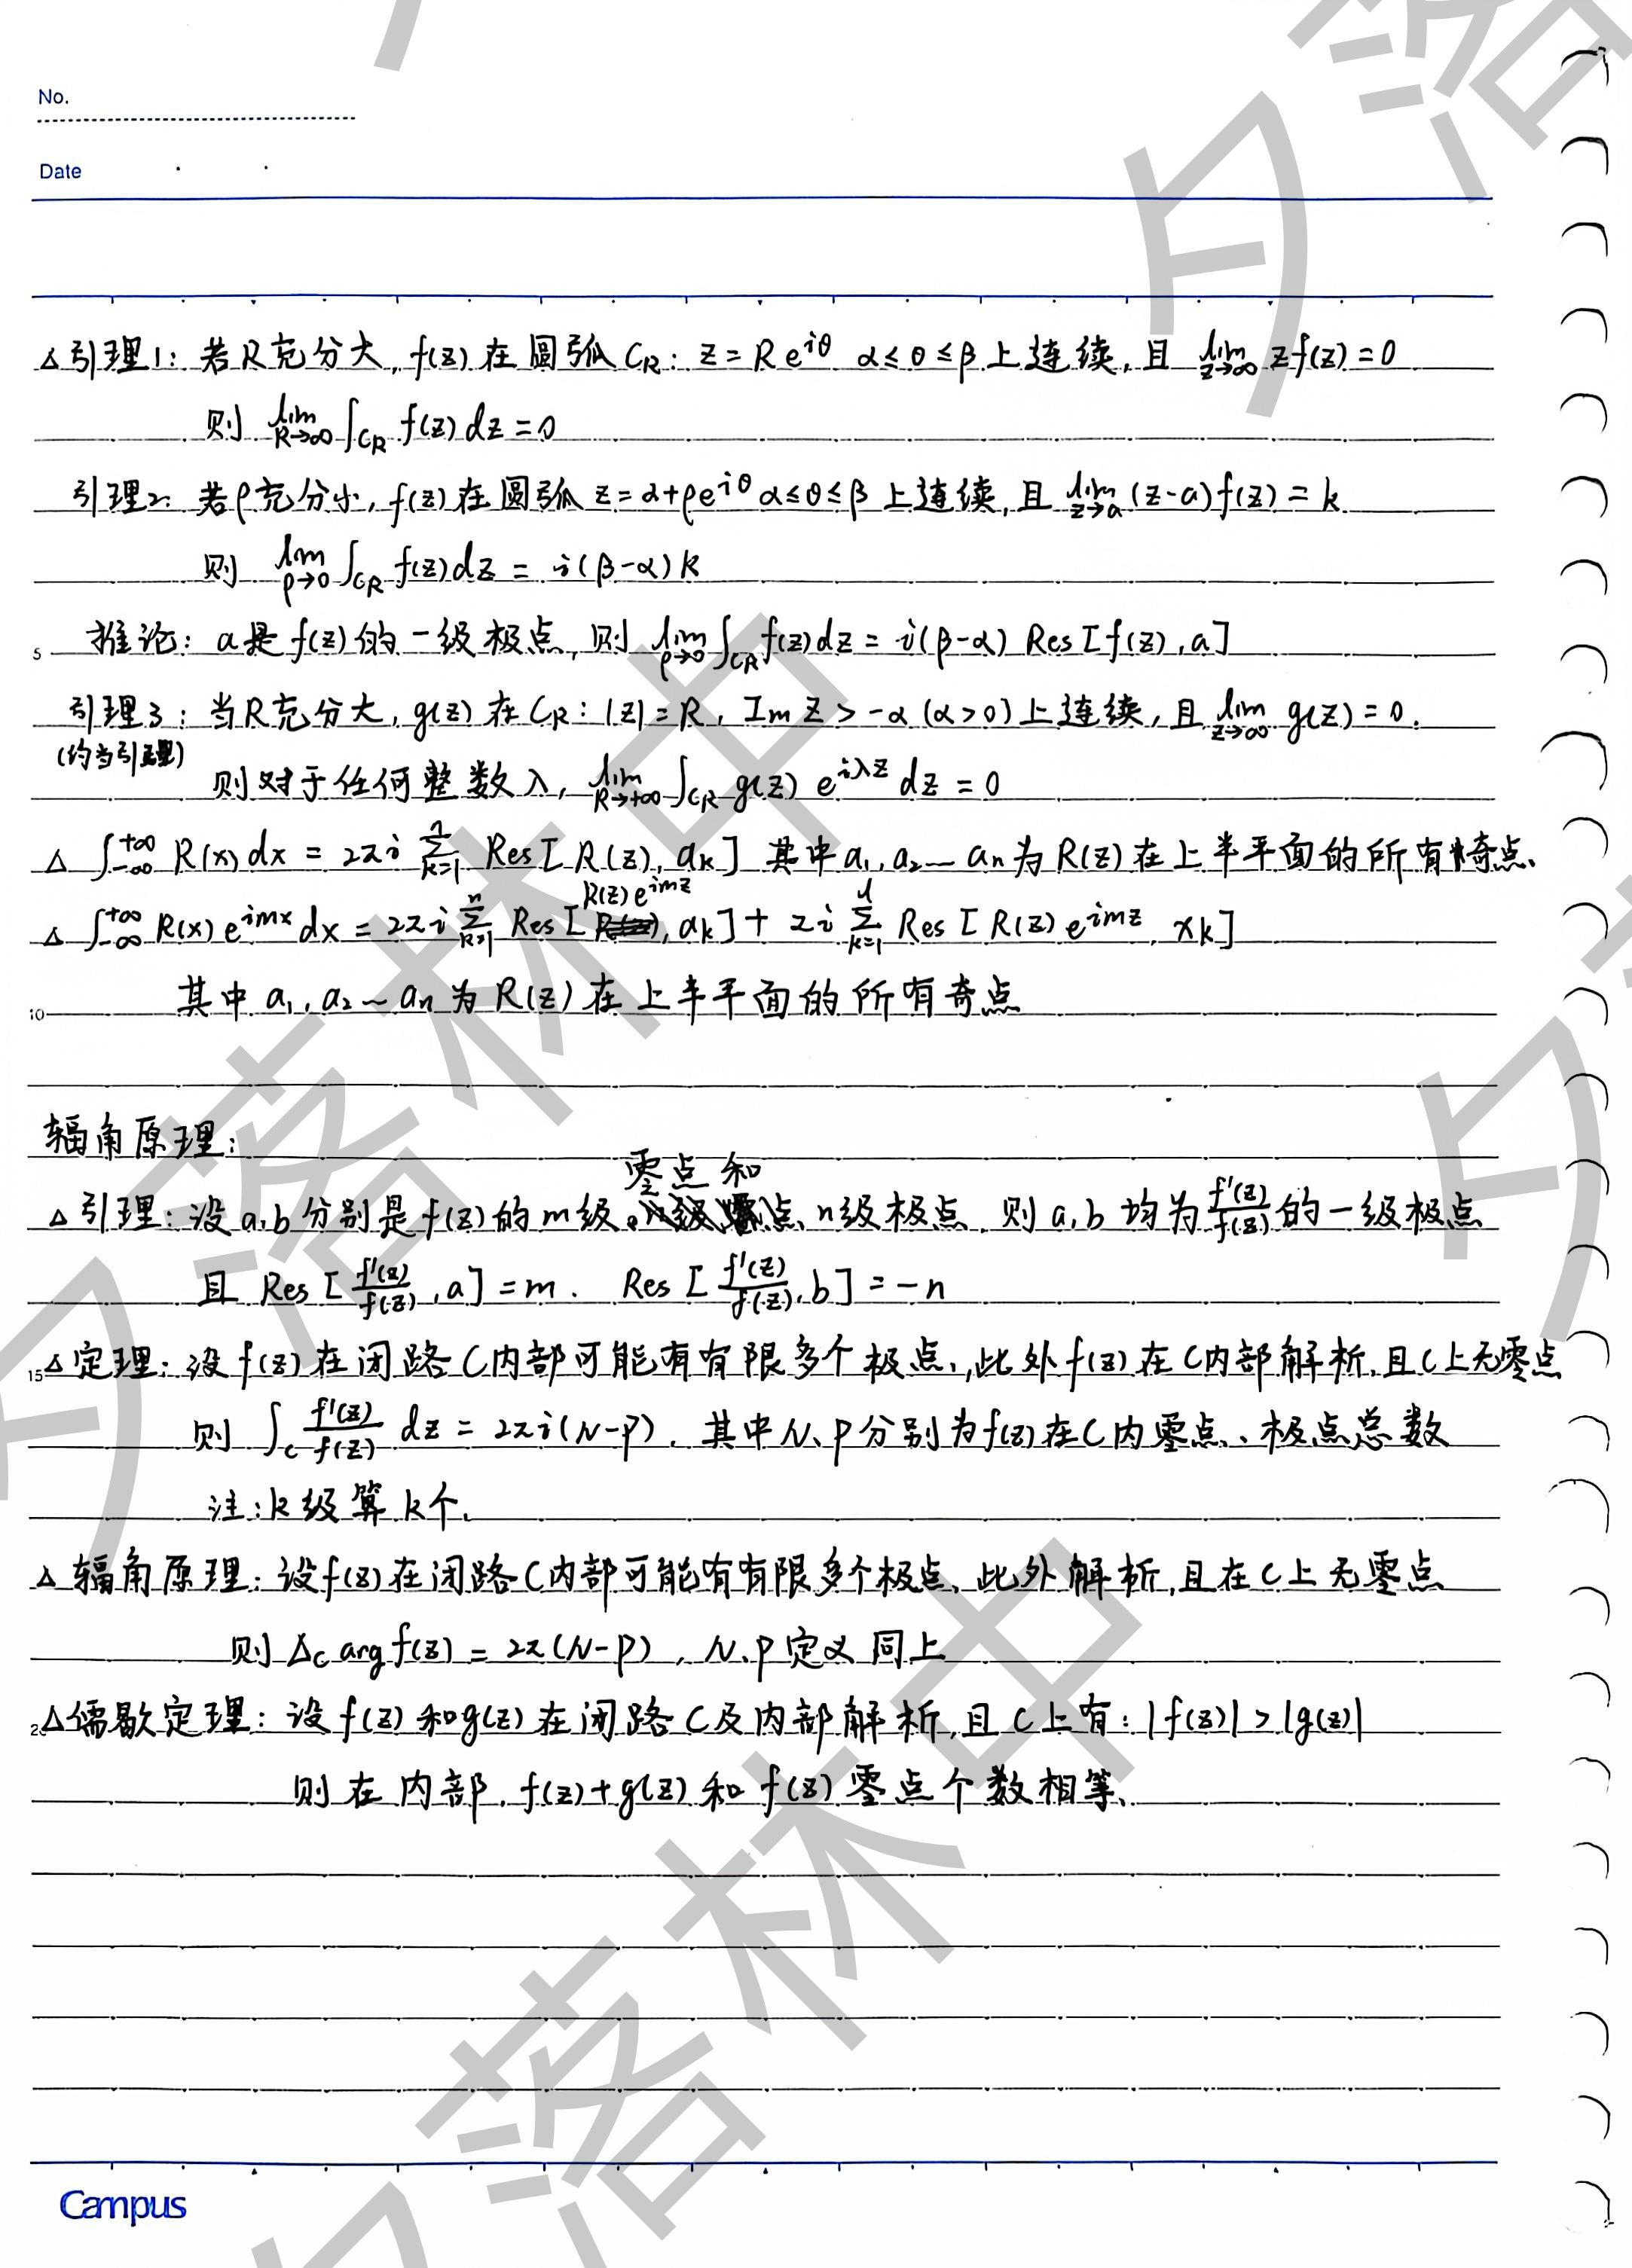 No.
Date
△引理1: 若R充分大, f(z) 在圆弧 C_R: z = Re^{iθ} α≤θ≤β 上连续, 且 lim_{z→∞} zf(z) = 0
则 lim_{R→∞} ∫_{C_R} f(z) dz = 0
引理2: 若ρ充分小, f(z) 在圆弧 z = α+ρe^{iθ} α≤θ≤β 上连续, 且 lim_{z→a} (z-a) f(z) = k.
则 lim_{ρ→0} ∫_{C_R} f(z) dz = i(β-α)k
5 推论: a是 f(z) 的一级极点, 则 lim_{ρ→0} ∫_{C_R} f(z) dz = i(β-α) Res[f(z), a]
引理3: 当R充分大, g(z) 在 C_R: |z| = R, Im z > -α (α>0) 上连续, 且 lim_{z→∞} g(z) = 0.
(约当引理)
则对于任何整数 λ, lim_{R→+∞} ∫_{C_R} g(z) e^{iλz} dz = 0
△ ∫_{-∞}^{+∞} R(x) dx = 2πi Σ_{k=1}^{n} Res[R(z), a_k] 其中 a_1, a_2 ~ a_n 为 R(z) 在上半平面的所有奇点.
△ ∫_{-∞}^{+∞} R(x) e^{imx} dx = 2πi Σ_{k=1}^{n} Res[R(z)e^{imz}, a_k] + πi Σ_{k=1}^{l} Res[R(z) e^{imz}, x_k]
10 其中 a_1, a_2 ~ a_n 为 R(z) 在上半平面的所有奇点
辐角原理:
△引理: 设 a,b 分别是 f(z) 的 m级零点和 n级极点. 则 a,b 均为 f'(z)/f(z) 的一级极点
且 Res[f'(z)/f(z), a] = m. Res[f'(z)/f(z), b] = -n
15 △定理: 设 f(z) 在闭路C内部可能有有限多个极点, 此外 f(z) 在C内部解析, 且C上无零点
则 ∫_C f'(z)/f(z) dz = 2πi(N-P). 其中 N、P 分别为 f(z) 在C内零点、极点总数
注: k级算k个.
△辐角原理: 设 f(z) 在闭路C内部可能有有限多个极点、此外解析, 且在C上无零点
则 △_C arg f(z) = 2π(N-P), N、P定义同上
20 △儒歇定理: 设 f(z) 和 g(z) 在闭路C及内部解析, 且 C上有: |f(z)| > |g(z)|
则在内部, f(z)+g(z) 和 f(z) 零点个数相等.
Campus
夕落林中
夕落林中